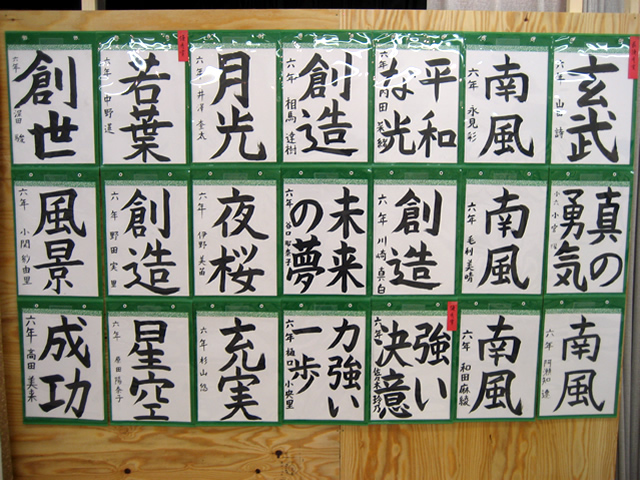 玄武
六年
南風
六年 永見 彩
平和
な光
六年
創造
六年 相馬 達樹
月光
六年 井澤 奎太
若葉
六年 中野 遥
創世
六年 深田 駿
真の
勇気
南風
六年 毛利 美晴
創造
六年 川崎 真白
未来
の夢
六年
夜桜
六年 伊野 美苗
創造
六年 野田 実里
風景
六年 小関 紗由里
南風
六年
南風
六年 和田 麻綾
強い
決意
六年 佐々木 玲乃
力強い
一歩
六年 樋口 小央里
充実
六年 杉山 悠
星空
六年 原田 陽奈子
成功
六年 高田 美来